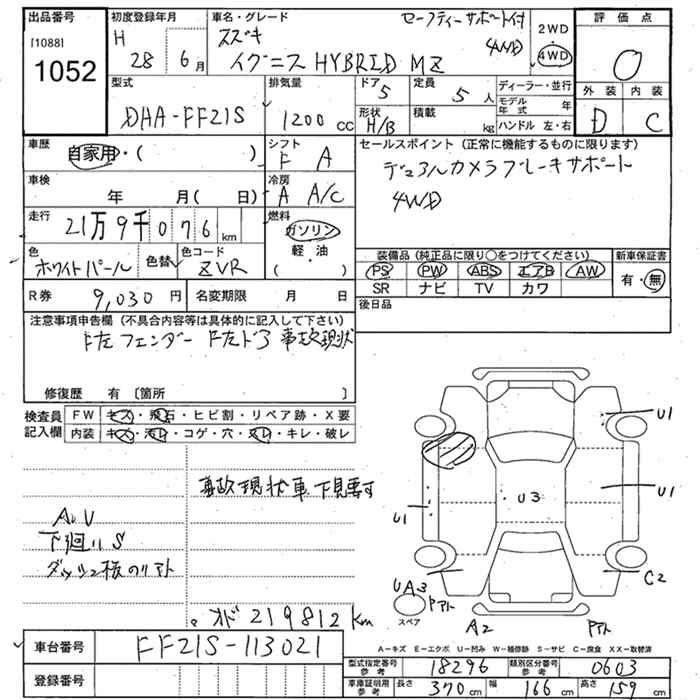 出品番号
[1088]
1052
初度登録年月
H 28 6月
車名・グレード セーフティーサポート付
スズキ 4WD
イグニス HYBRID MZ
2WD
4WD
評価点
0
外装 内装
D C
型式
DHA-FF21S
排気量
1200 CC
ドア 5
定員 5人
形状 H/B
積載 kg
ディーラー・並行
モデル年式 年
ハンドル 左・右
車歴
自家用・( )
シフト
F A
セールスポイント (正常に機能するものに限ります)
デュアルカメラブレーキサポート
4WD
車検
年 月( 日)
冷房
A A/C
走行
21万9千076km
燃料
ガソリン
軽・油
( )
色
ホワイトパール
色替
色コード
ZVR
装備品 (純正品に限り○をつけてください)
PS PW ABS エアB AW
SR ナビ TV カワ
新車保証書
有・無
R券 9,030円
名変期限 月 日
後日品
注意事項申告欄 (不具合内容等は具体的に記入して下さい)
F左フェンダー F左ドア 事故現状
修復歴 有 〔箇所 〕
検査員記入欄
FW キズ・飛石・ヒビ割・リペア跡・X要
内装 キズ・汚レ・コゲ・穴・スレ・キレ・破レ
事故現状車 下見要す
A.U
下廻りS
ダッシュ様のリアト
オド 219812km
U1
U1
U1
U3
C2
UA3
スペア
Pアト
A2
Pアト
A−キズ E−エクボ U−凹み W−補修跡 S−サビ C−腐食 XX−取替済
車台番号 FF21S-113021
登録番号
型式指定番号 参考 18296
類別区分番号 参考 0603
車庫証明用 参考 長さ 370cm 幅 166cm 高さ 159cm